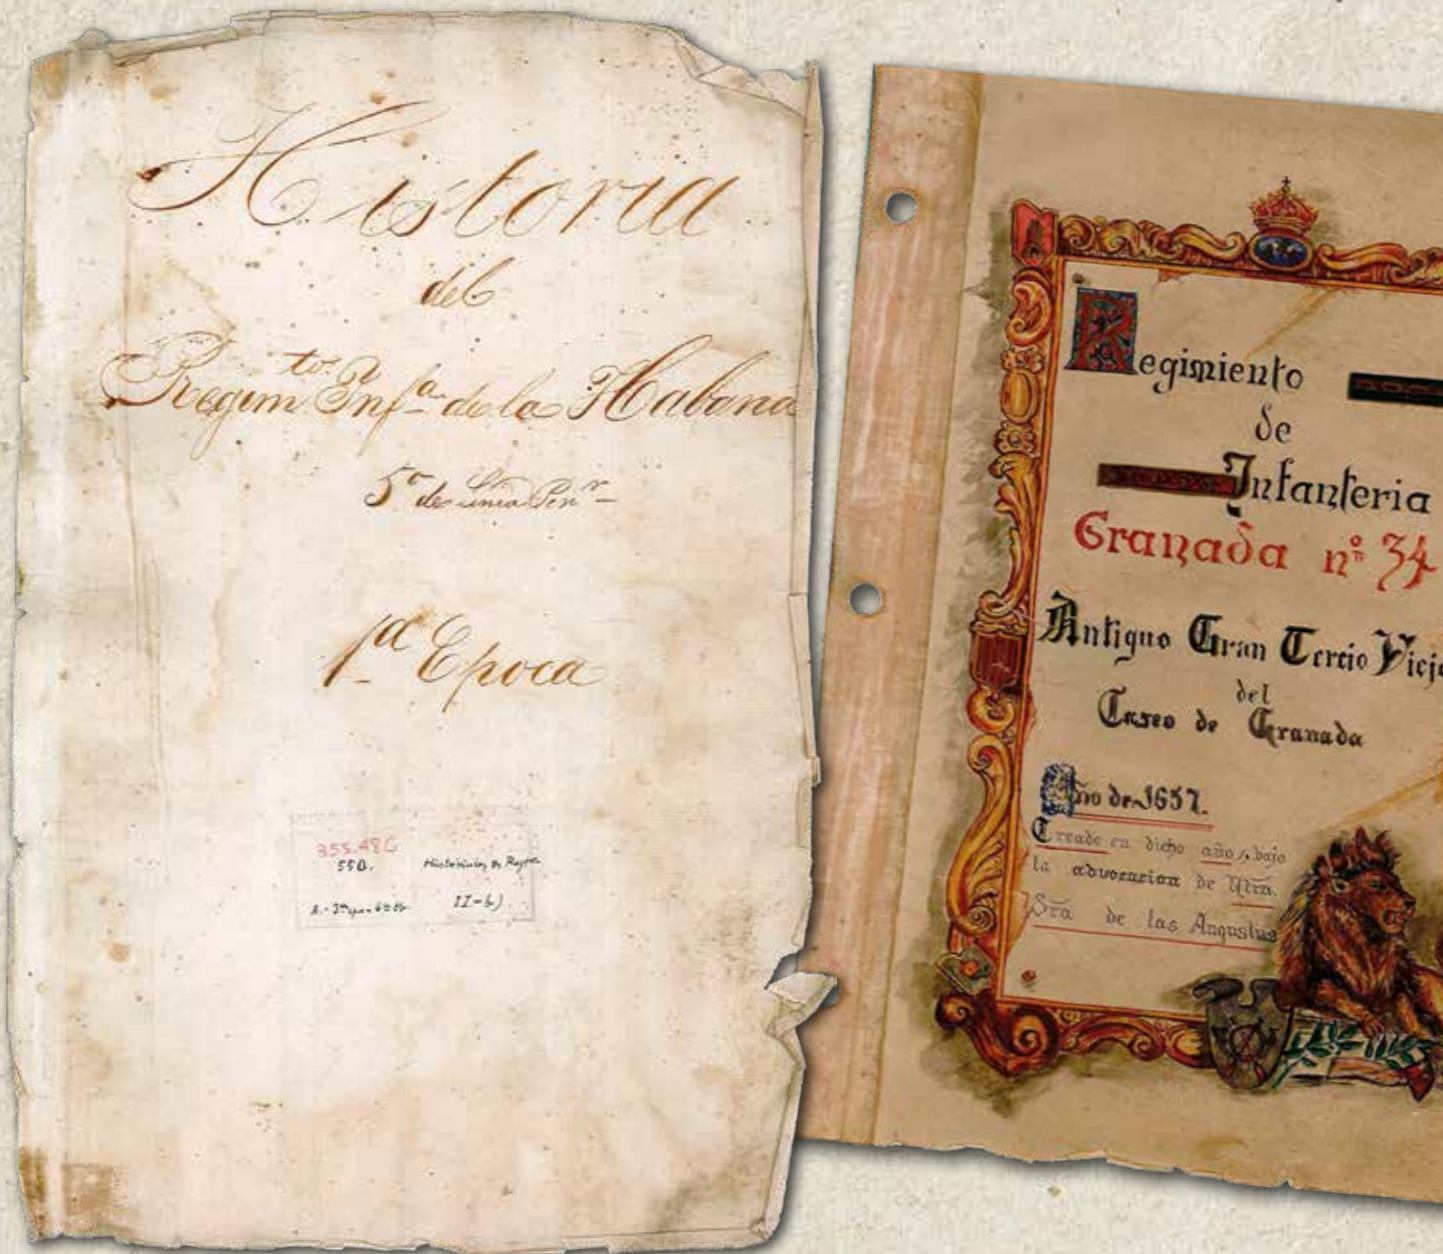 Historia
del
Regim.to Inf.a de la Habana
5º de Linea
1ª Epoca
355.486
550.
II-b)
Regimiento
de
Infanteria
Granada nº 34
Antiguo Gran Tercio Viejo
del
Casco de Granada
Año de 1657.
Creado en dicho año, bajo
la advocacion de Ntra.
Sra de las Angustias